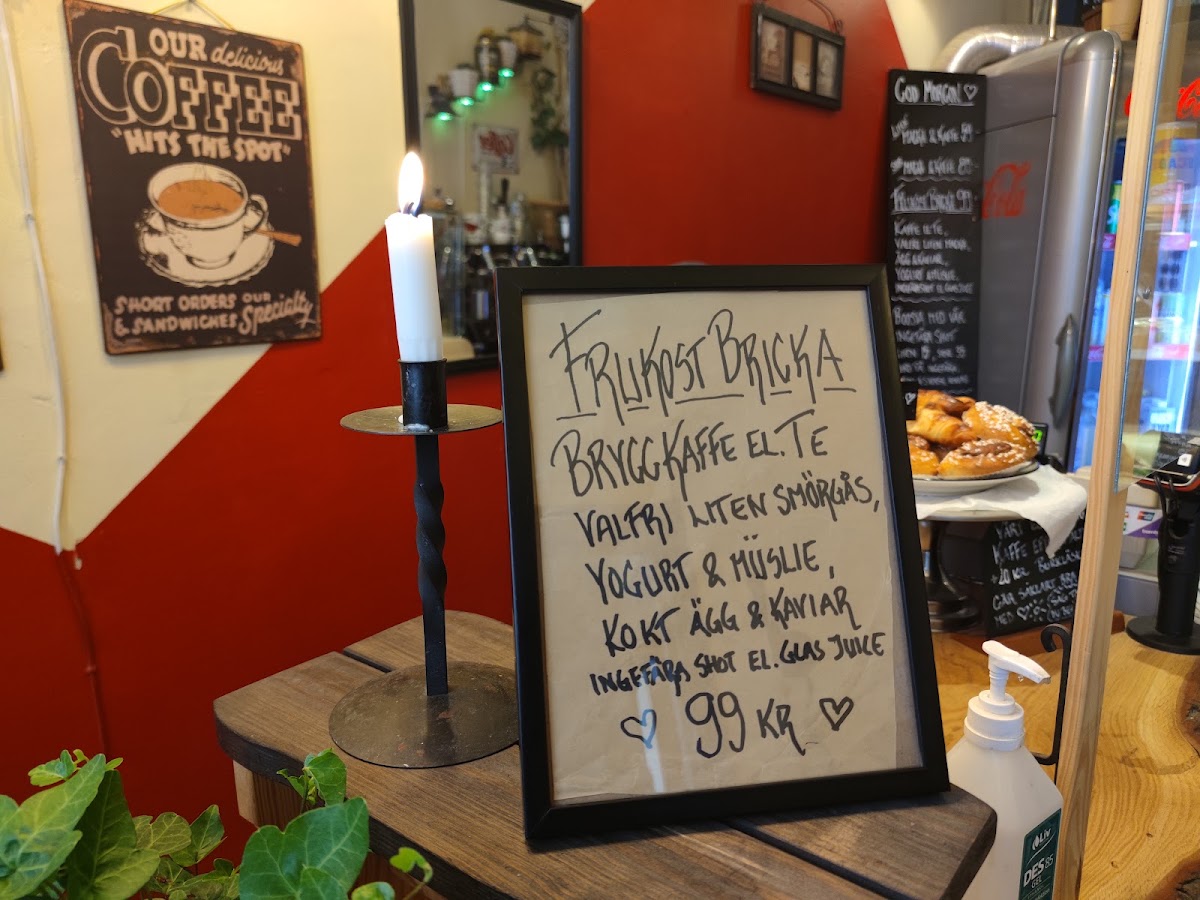 OUR delicious
COFFEE
"HITS THE SPOT"
SHORT ORDERS OUR
& SANDWICHES Specialty
FRUKOST BRICKA
BRYGGKAFFE EL. TE
VALFRI LITEN SMÖRGÅS,
YOGURT & MÜSLIE,
KOKT ÄGG & KAVIAR
INGEFÄRA SHOT EL. GLAS JUICE
♡ 99 KR ♡
GOD MORGON! ♡
MACKA & KAFFE 99
KAFFE 89
FRUKOST BRICKA 99
KAFFE EL TE,
VALFRI LITEN MACKA,
ÄGG & KAVIAR,
YOGURT & MÜSLIE,
BOOSTA MED VÅR
INGEFÄRA SHOT
Coca-Cola
KAFFE
20 KR
MED ♡
Liv
DES 85
GEL